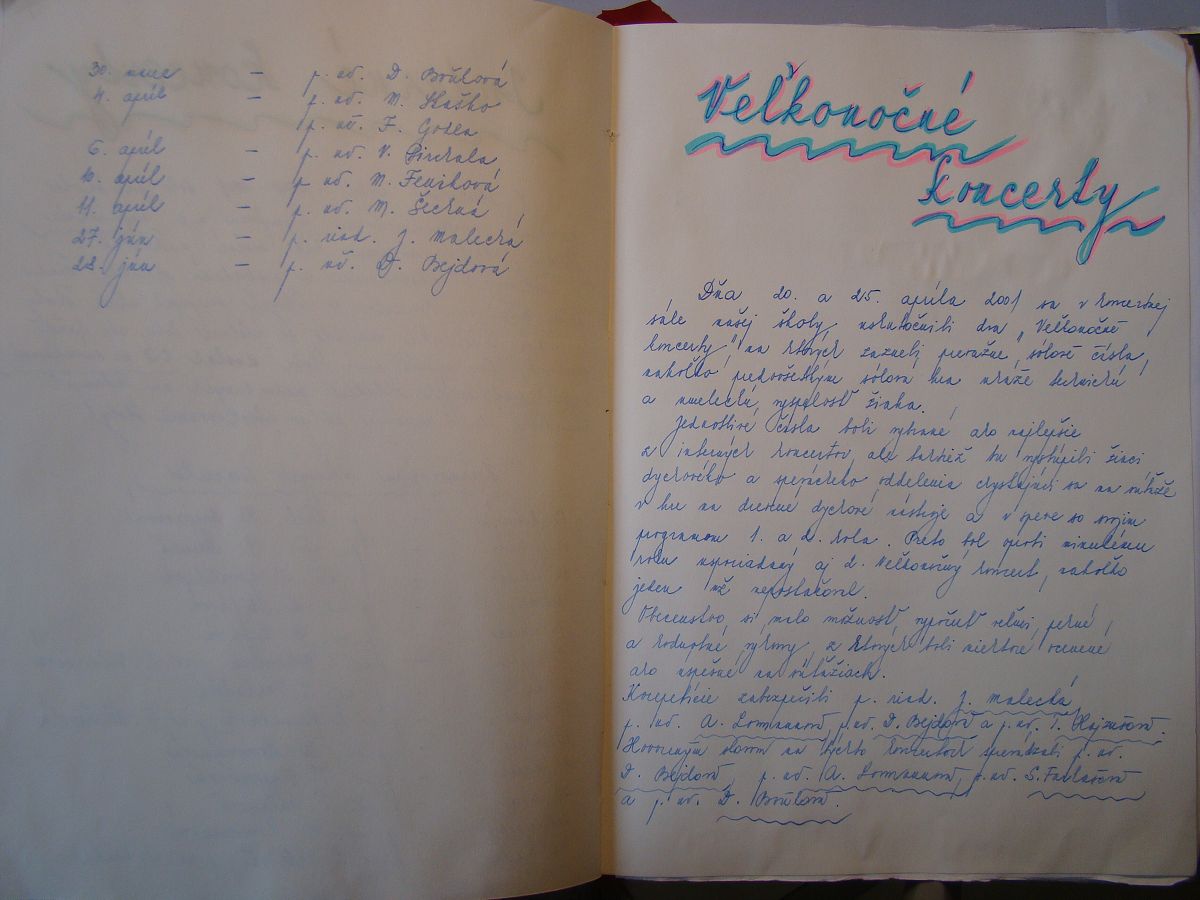 30. marec – p. uč. D. Brůlová
4. apríl – p. uč. M. Staško
p. uč. F. Godla
6. apríl – p. uč. V.
10. apríl – p. uč. M. Feniková
11. apríl – p. uč. M. Šerná
27. jún – p. riad. J. Malecká
28. jún – p. uč. D. Bejdová
Veľkonočné
koncerty
Dňa 20. a 25. apríla 2001 sa v koncertnej
sále našej školy, uskutočnili dva „Veľkonočné
koncerty," na ktorých zazneli prevažne sólové čísla,
nakoľko predovšetkým sólová hra ukáže technickú
a umeleckú vyspelosť žiaka.
Jednotlivé čísla boli vybrané ako najlepšie
z interných koncertov, ale taktiež tu vystúpili žiaci
dychového a speváckeho oddelenia chystajúci sa na súťaže
v hre na drevené dychové nástroje a v speve so svojim
programom 1. a 2. kola. Preto bol oproti minulému
roku usporiadaný aj 2. Veľkonočný koncert, nakoľko
jeden už nepostačoval.
Obecenstvo si malo možnosť vypočuť veľmi pekné
a hodnotné výkony, z ktorých boli niektoré ocenené
ako úspešné na súťažiach.
Korepetície zabezpečili p. riad. J. Malecká
p. uč. A. Lormanová, p. uč. D. Bejdová a p. uč. T.
Hovoreným slovom na týchto koncertoch sprevádzali p. uč.
D. Bejdová, p. uč. A. Lormanová, p. uč. S.
a p. uč. D. Brůlová.